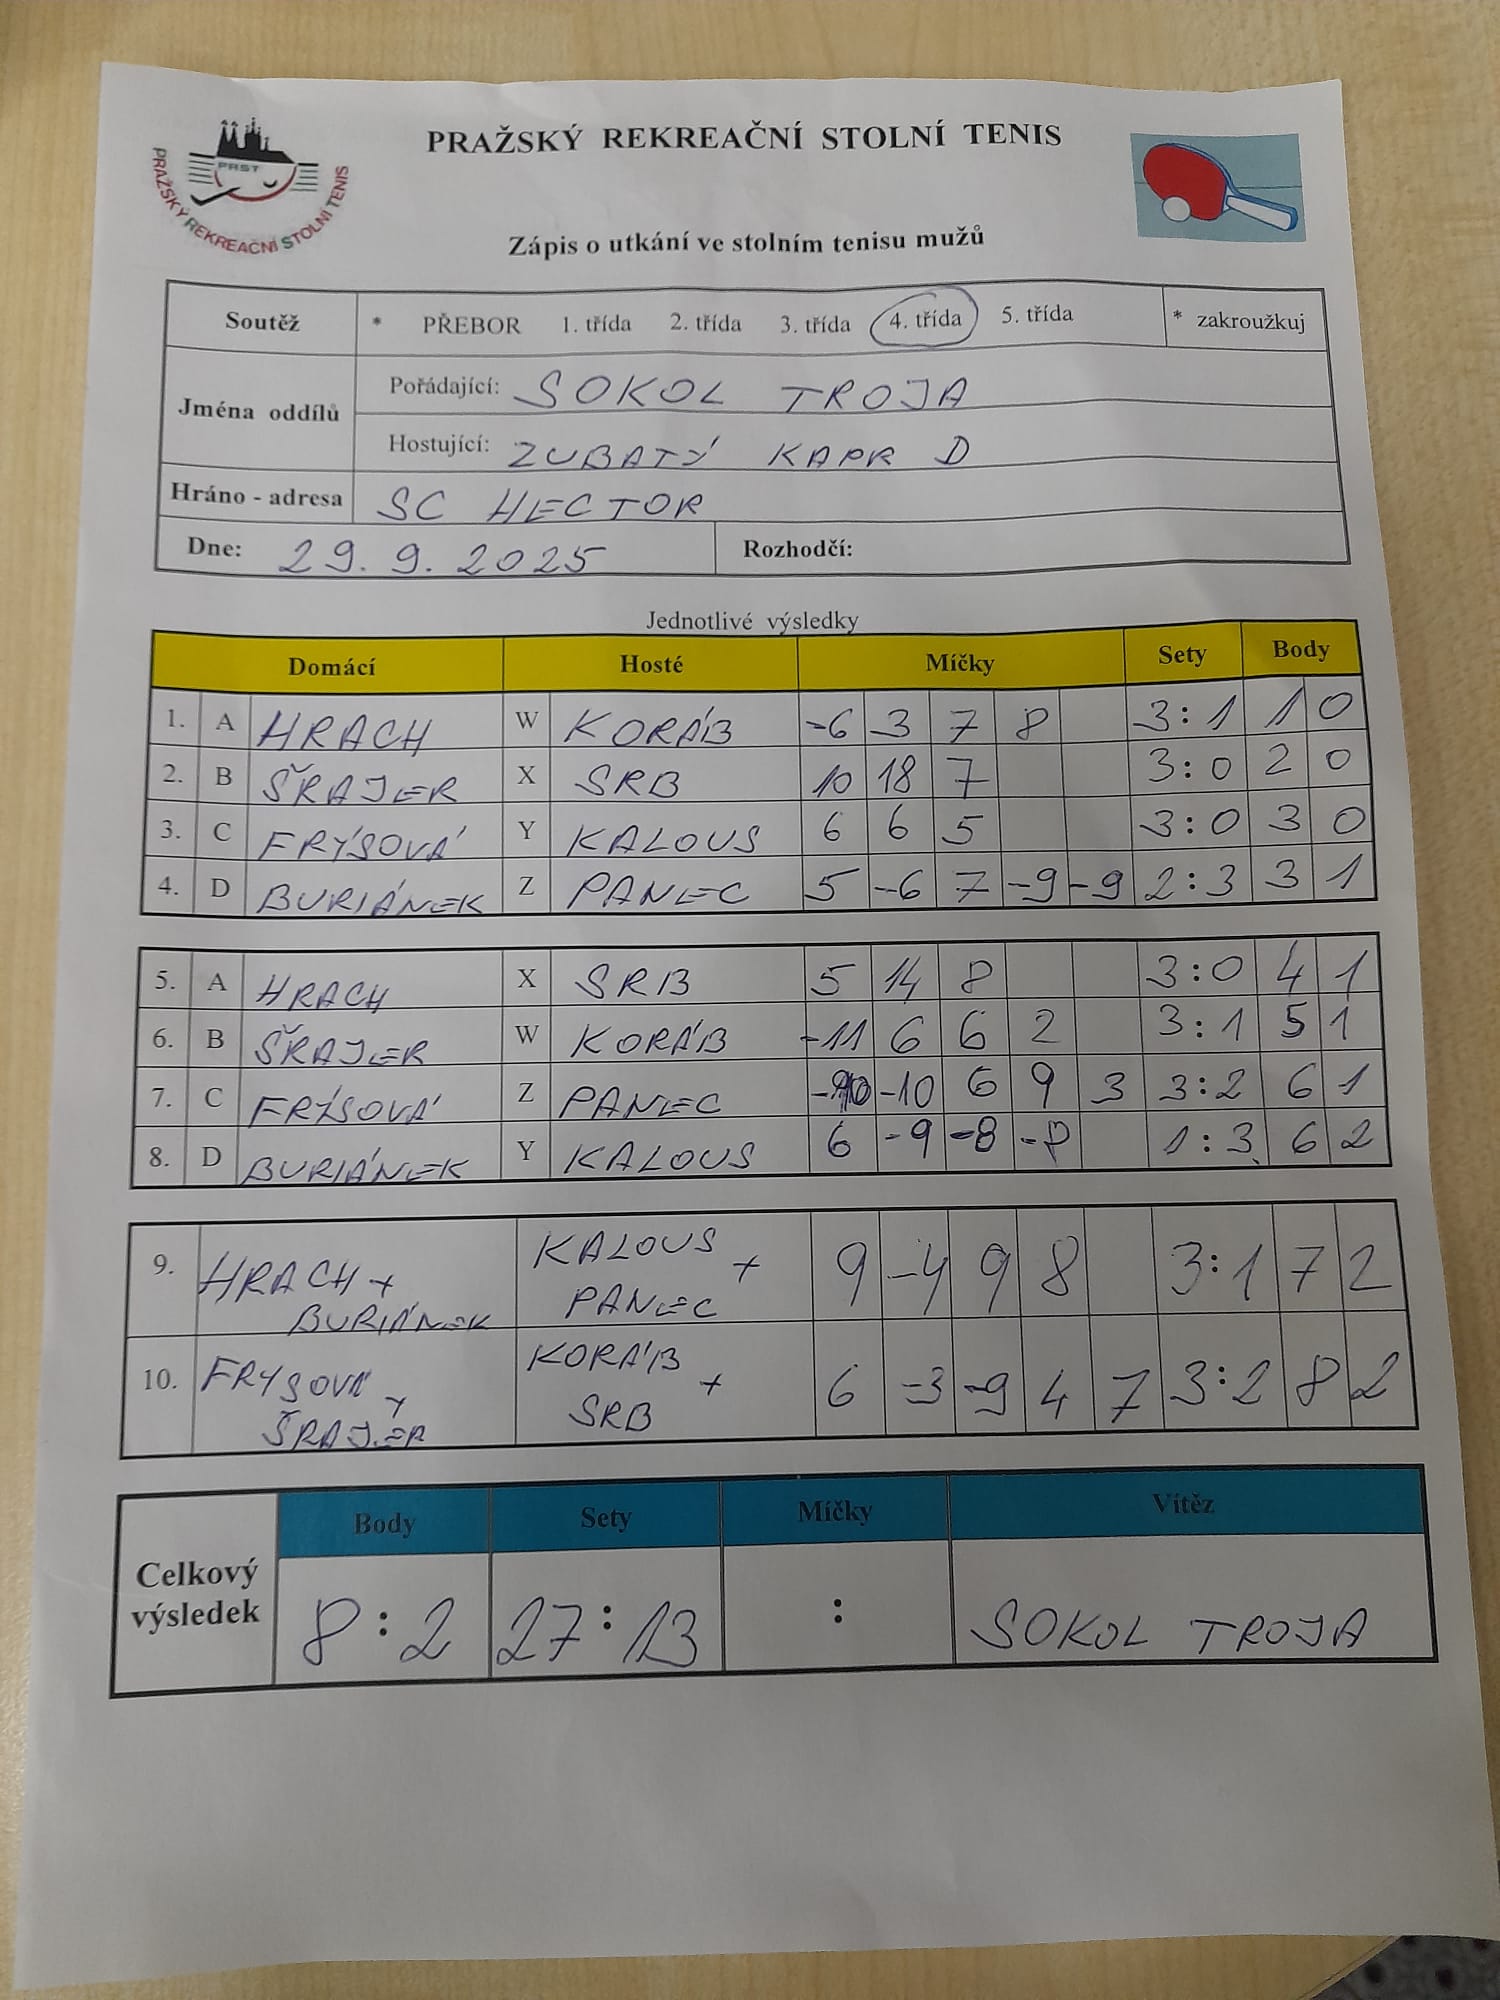 PRAŽSKÝ REKREAČNÍ STOLNÍ TENIS
PRST
PRAŽSKÝ REKREAČNÍ STOLNÍ TENIS
Zápis o utkání ve stolním tenisu mužů
Soutěž * PŘEBOR 1. třída 2. třída 3. třída 4. třída 5. třída * zakroužkuj
Jména oddílů
Pořádající: SOKOL TROJA
Hostující: ZUBATÝ KAPR D
Hráno - adresa SC HECTOR
Dne: 29. 9. 2025 Rozhodčí:
Jednotlivé výsledky
Domácí Hosté Míčky Sety Body
1. A HRACH W KORÁB -6 3 7 8 3:1 1 0
2. B ŠRAJER X SRB 10 18 7 3:0 2 0
3. C FRÝSOVÁ Y KALOUS 6 6 5 3:0 3 0
4. D BURIÁNEK Z PANEC 5 -6 7 -9 -9 2:3 3 1
5. A HRACH X SRB 5 14 8 3:0 4 1
6. B ŠRAJER W KORÁB -11 6 6 2 3:1 5 1
7. C FRÝSOVÁ Z PANEC -10 6 9 3 3:2 6 1
8. D BURIÁNEK Y KALOUS 6 -9 -8 -8 1:3 6 2
9. HRACH + BURIÁNEK KALOUS + PANEC 9 -4 9 8 3:1 7 2
10. FRYSOVÁ + ŠRAJER KORÁB + SRB 6 -3 -9 4 7 3:2 8 2
Celkový výsledek
Body Sety Míčky Vítěz
8:2 27:13 : SOKOL TROJA